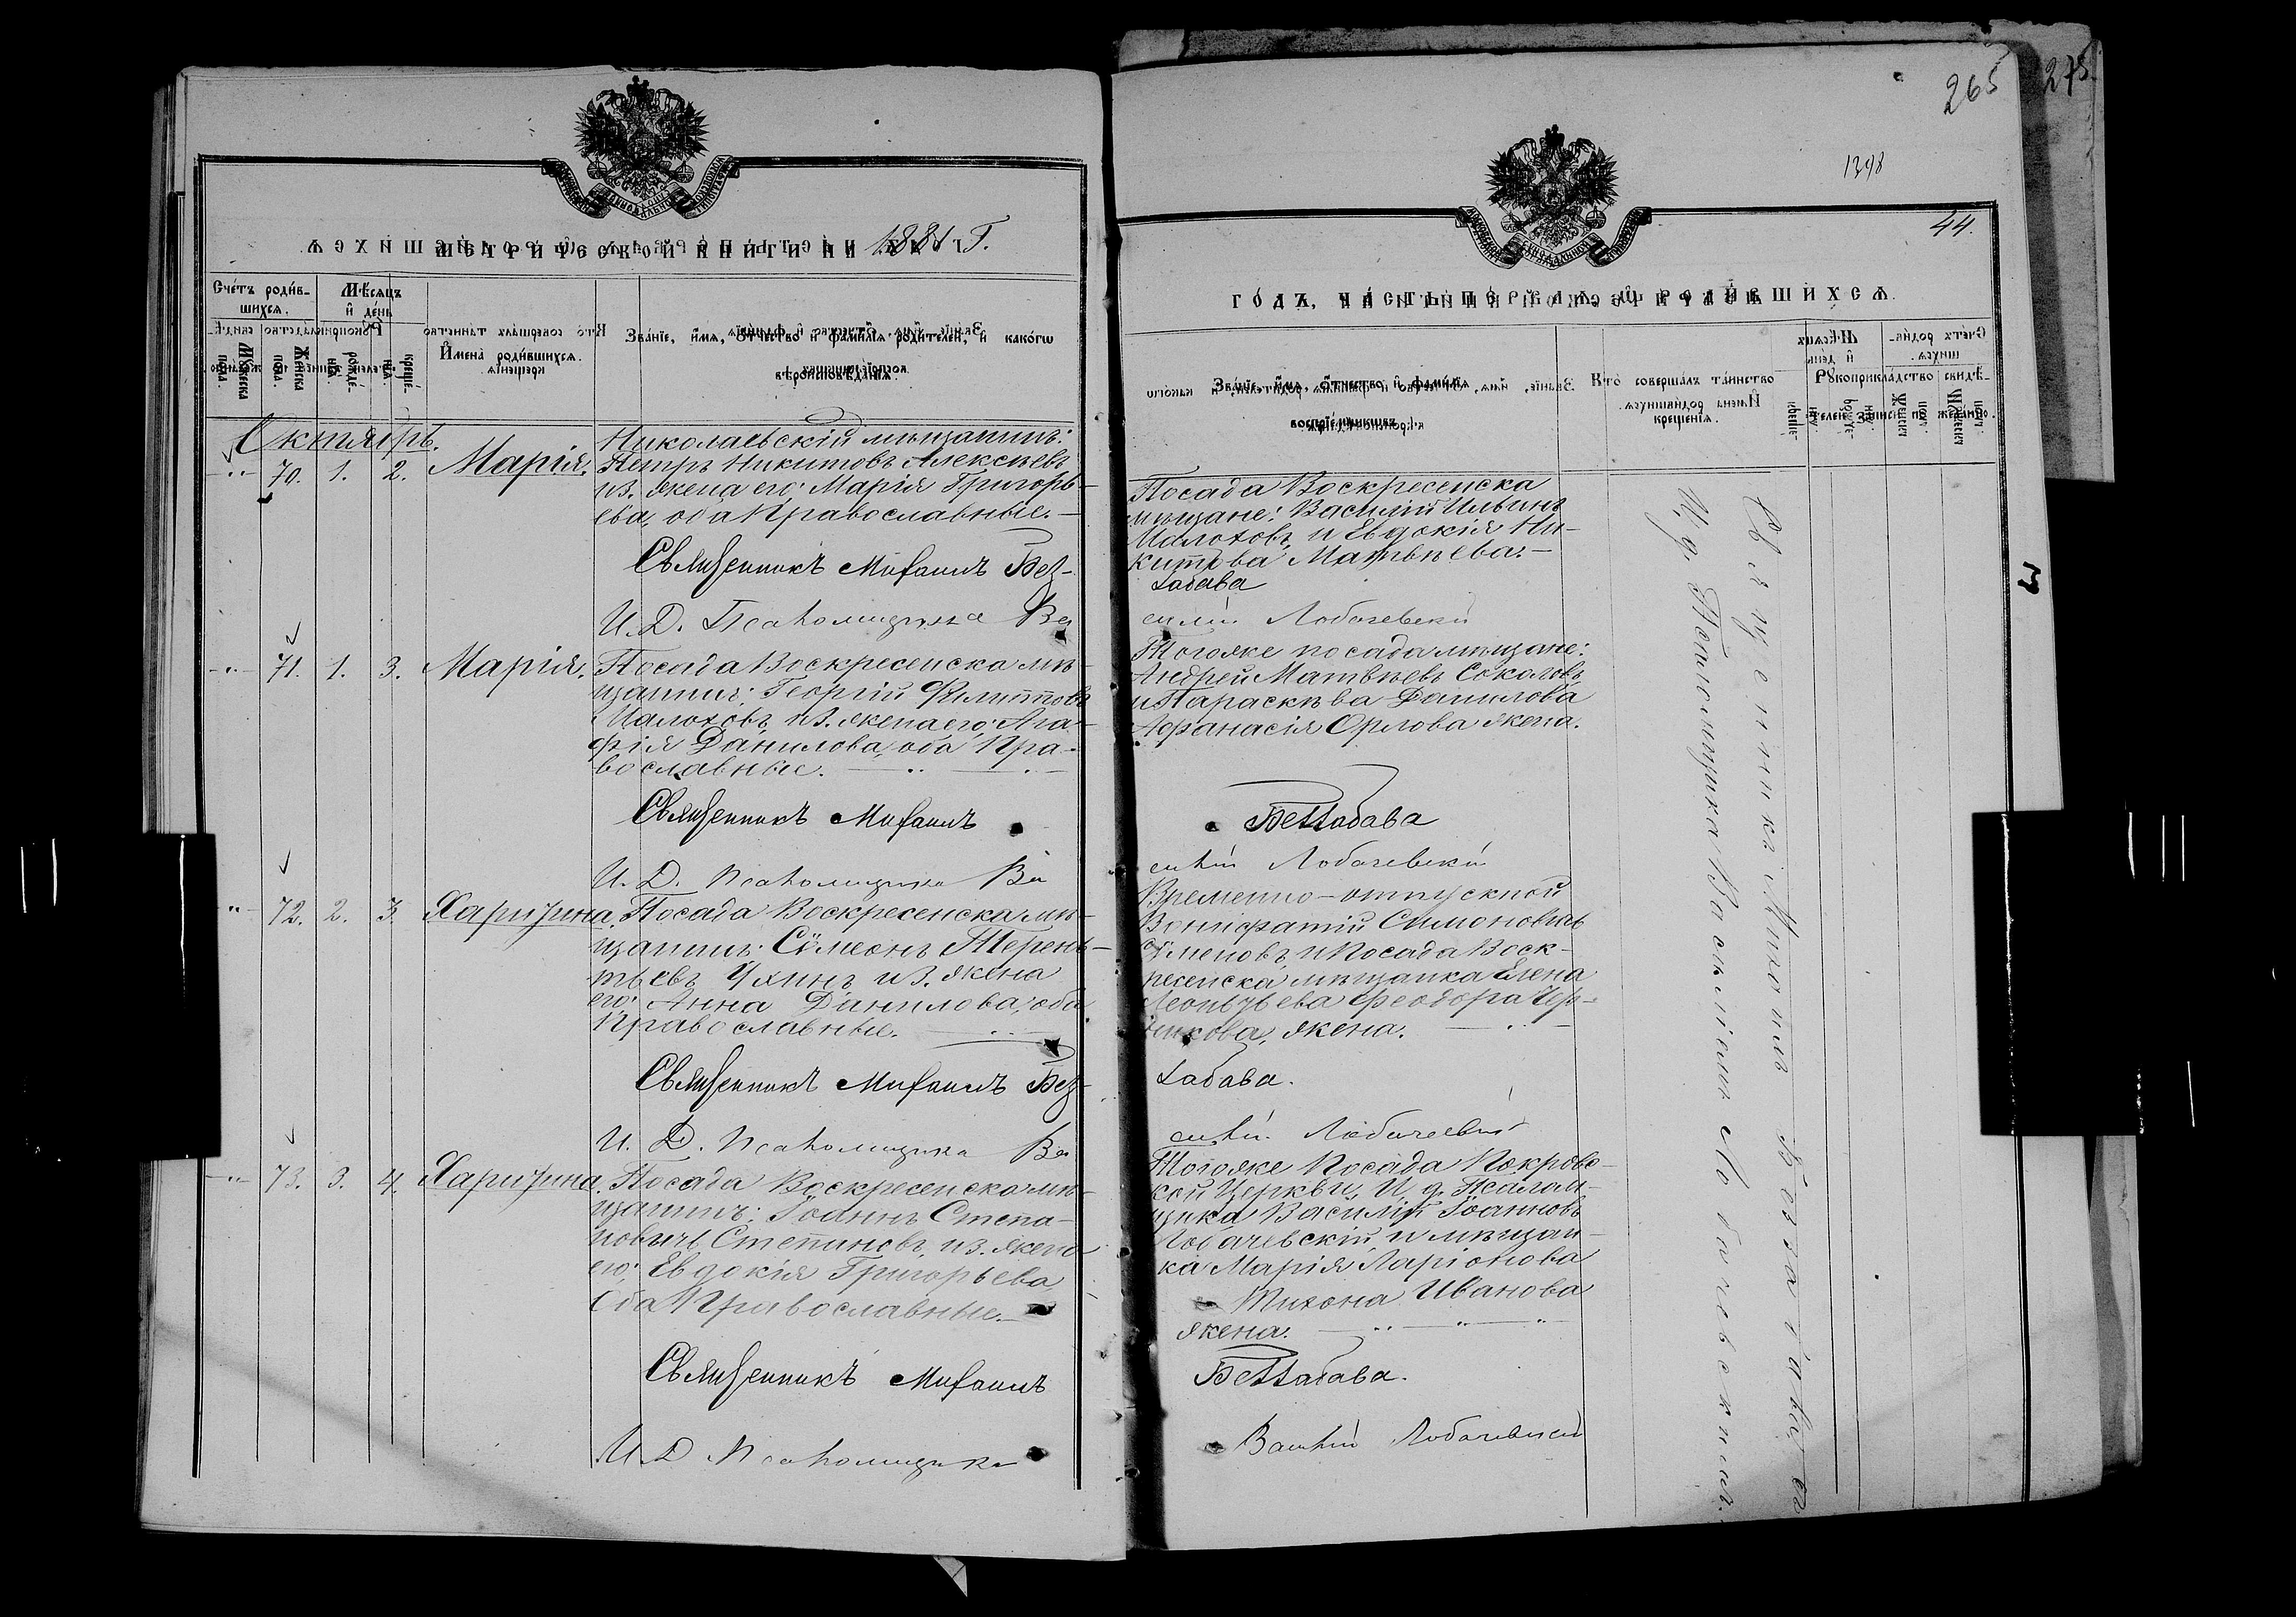 1881 Г.
Счётъ родив-
шихся.
Мѣсяцъ
и день
Мужеска
пола.
Женска
пола.
рожде-
нія.
креще-
нія.
Имена родившихся.
Званіе, имя, отчество и фамилія родителей, и какого
вѣроисповѣданія.
Октябрь.
70. 1. 2. Марія.
Николаевскій мѣщанинъ:
Петръ Никитовъ Алексѣевъ
из. жена его: Марія Григорь-
ева, оба Православные.
Священникъ Михаилъ Без-
И. Д. Псаломщика Ва
71. 1. 3. Марія.
Посада Воскресенска мѣ-
щанинъ: Георгій Филипповъ
Малоховъ, из. жена его: Ага-
фія Данилова, оба Пра-
вославные.
Священникъ Михаилъ
И. Д. Псаломщика Ва
72. 2. 3. Харитина.
Посада Воскресенска мѣ-
щанинъ: Сѵмеонъ Терень-
тьевъ из. жена
его: Анна Данилова, оба
Православные.
Священникъ Михаилъ Без-
И. Д. Псаломщика Ва
73. 3. 4. Харитина.
Посада Воскресенска мѣ-
щанинъ: Іоаннъ Степа-
новичъ Степановъ, из. жена
его: Евдокія Григорьева,
Оба Православные.
Священникъ Михаилъ
И. Д. Псаломщика
265
275.
1398
44.
годъ, часть первая, о родившихся.
Званіе, имя, отчество и фамилія
воспріемниковъ.
Кто совершалъ таинство
крещенія.
Рукоприкладство свидѣ-
телей записи по желанію.
Посада Воскресенска
мѣщане: Василій Ильинъ
Малоховъ, и Евдокія Ни-
китова Матвѣева.
забава
силій Лобачевскій
Тогоже посада мѣщане:
Андрей Матвѣевъ Соколовъ
и Параскѣва Данилова
Афанасія Орлова жена.
Беззабава
силій Лобачевскій
Временно-отпускной
Вонифатій Симоновичъ
и Посада Воск-
ресенска мѣщанка Елена
Леонтьева Феодора
жена.
забава.
силій Лобачевскій
Тогоже Посада Покровс-
кой Церкви, И. д. Псалом-
щика Василій Іоанновъ
Лобачевскій, и мѣщан-
ка Марія Ларіонова
Тихона Иванова
жена.
Беззабава.
Василій Лобачевскій
Священникъ Михаилъ Беззабава съ
И. д. Псаломщика Василіемъ Лобачевскимъ.